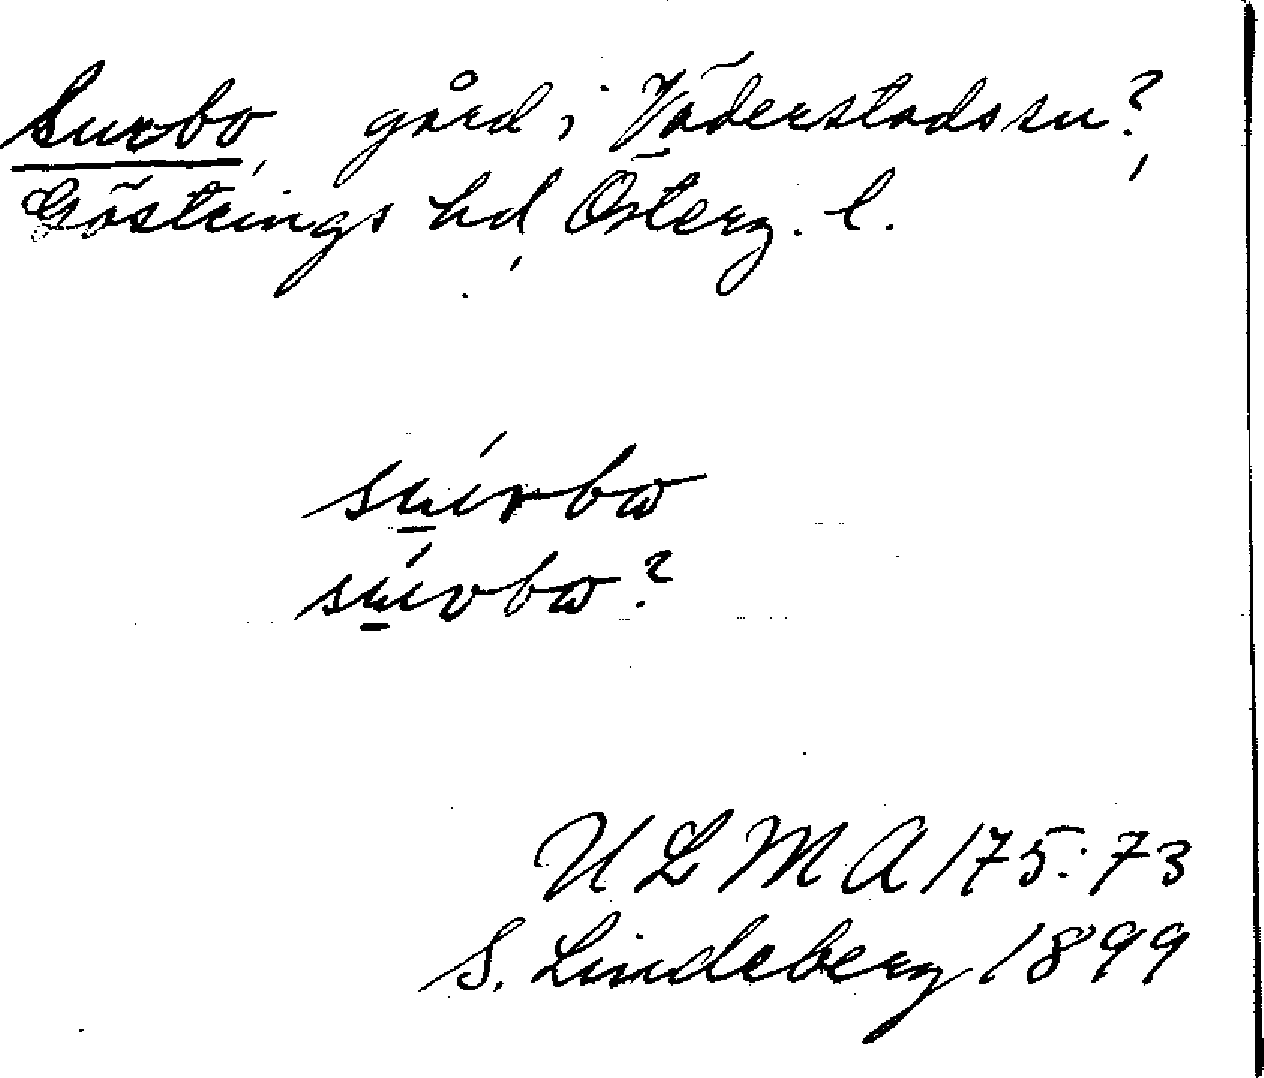 Surbo, gård i Väderstads sn?,
Göstrings hd, Österg. l.
sụ́rbω
sụ́rbω?
ULMA 175:73
S. Lindeberg 1899